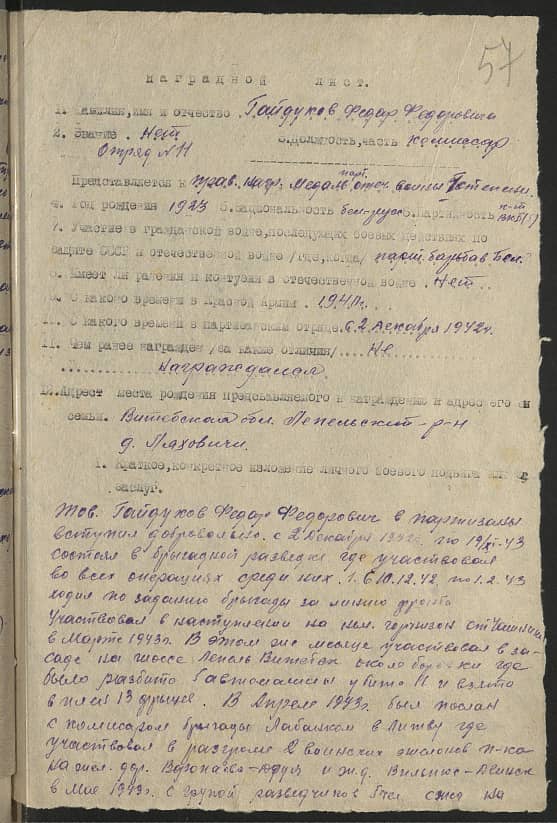 57
наградной лист.
1. Фамилия, имя и отчество. Гайдуков Федар Федорович
2. Звание. Нет 3. Должность, часть комиссар
Отряд №11
Представляется к прав. нагр. Медаль парт. отеч. войны I степени.
4. Год рождения 1923 5. национальность белорус 6. партийность к-т ВКП(б)
7. Участие в гражданской войне, последующих боевых действиях по
защите СССР и отечественной войне /где, когда/ парт. борьба в Бел.
8. Имеет ли ранения и контузии в отечественной войне. Нет..
9. С какого времени в Красной Армии. 1941г.
10. С какого времени в партизанском отряде. С 2 декабря 1942г.
11. Чем ранее награжден /за какие отличия/.... Не
награждался.
12. Адрест места рождения представляемого к награждению и адрес его
семьи. Витебская обл. Лепельский-р-н
д. Ляховичи.
1. Краткое, конкретное изложение личного боевого подвига или
заслуг.
Тов. Гайдуков Федар Федорович в партизаны
вступил добровольно. с 2 декабря 1942г. по 43
состоял в бригадной разведке где участвовал
во всех операциях среди них. 1. с 10.12.42 по 1.2.43
ходил по заданию бригады за линию фронта
Участвовал в наступлении на нем. горнизон
в Марте 1943г. В этом же месяце участвовал в за-
саде на шоссе Лепель Витебск около где
было разбито 6 автомашин убито 11 и взято
в плен 13 фрицев. В Апреле 1943г. был послан
с комиссаром бригады Лабанком в Литву где
участвовал в разгроме 2 воинских эшелонов п-ка
на жел. дор. и ж.д. Вильнюс-Двинск
в Мае 1943г. с групой разведчиков на